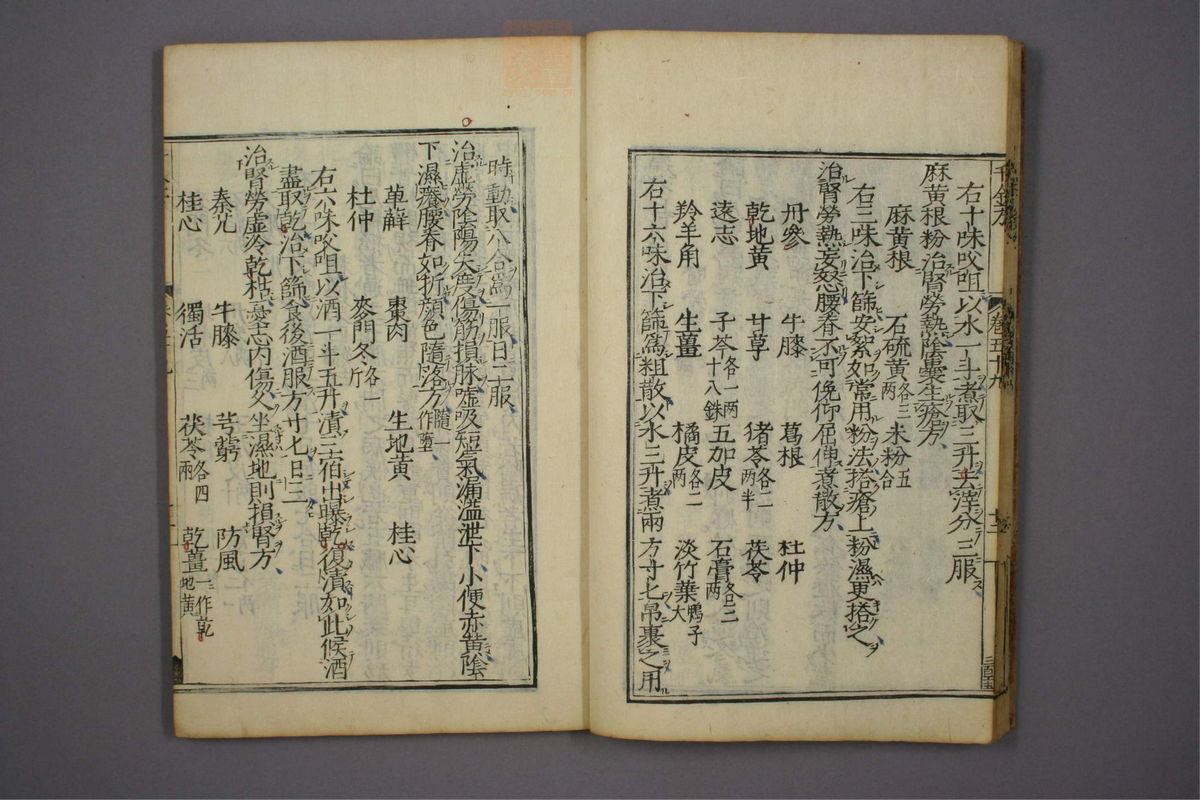 右十味㕮咀以水一斗煮取三升去滓分三服
麻黄根粉治腎勞熱陰囊生瘡方
麻黄根 石硫黄各三两 米粉五合
右三味治下篩安絮如常用粉法搭瘡上粉濕更搭之
治腎勞熱妄怒腰脊不可俛仰屈伸煮散方
丹參 牛膝 葛根 杜仲
乾地黄 甘草 猪苓各二两半 茯苓
遠志 子芩各一两十八銖 五加皮 石膏各三两
羚羊角 生薑 橘皮各二两 淡竹葉鴨子大
右十六味治下篩爲粗散以水三升煮兩方寸七帛裹之用
千金方 卷五十九
時動取八合爲一服日二服
治虛勞陰陽失度傷筋損脉噓吸短氣漏溢泄下小便赤黄陰
下濕癢腰脊如折顔色隨落方隨一作堕
萆薢 棗肉 生地黄 桂心
杜仲 麥門冬各一斤
右六味㕮咀以酒一斗五升漬三宿出曝乾復漬如此候酒
盡取乾治下篩食後酒服方寸七日三
治腎勞虛冷乾枯憂恚内傷久坐濕地則損腎方
秦艽 牛膝 芎藭 防風
桂心 獨活 茯苓各四兩 乾薑一作乾地黄